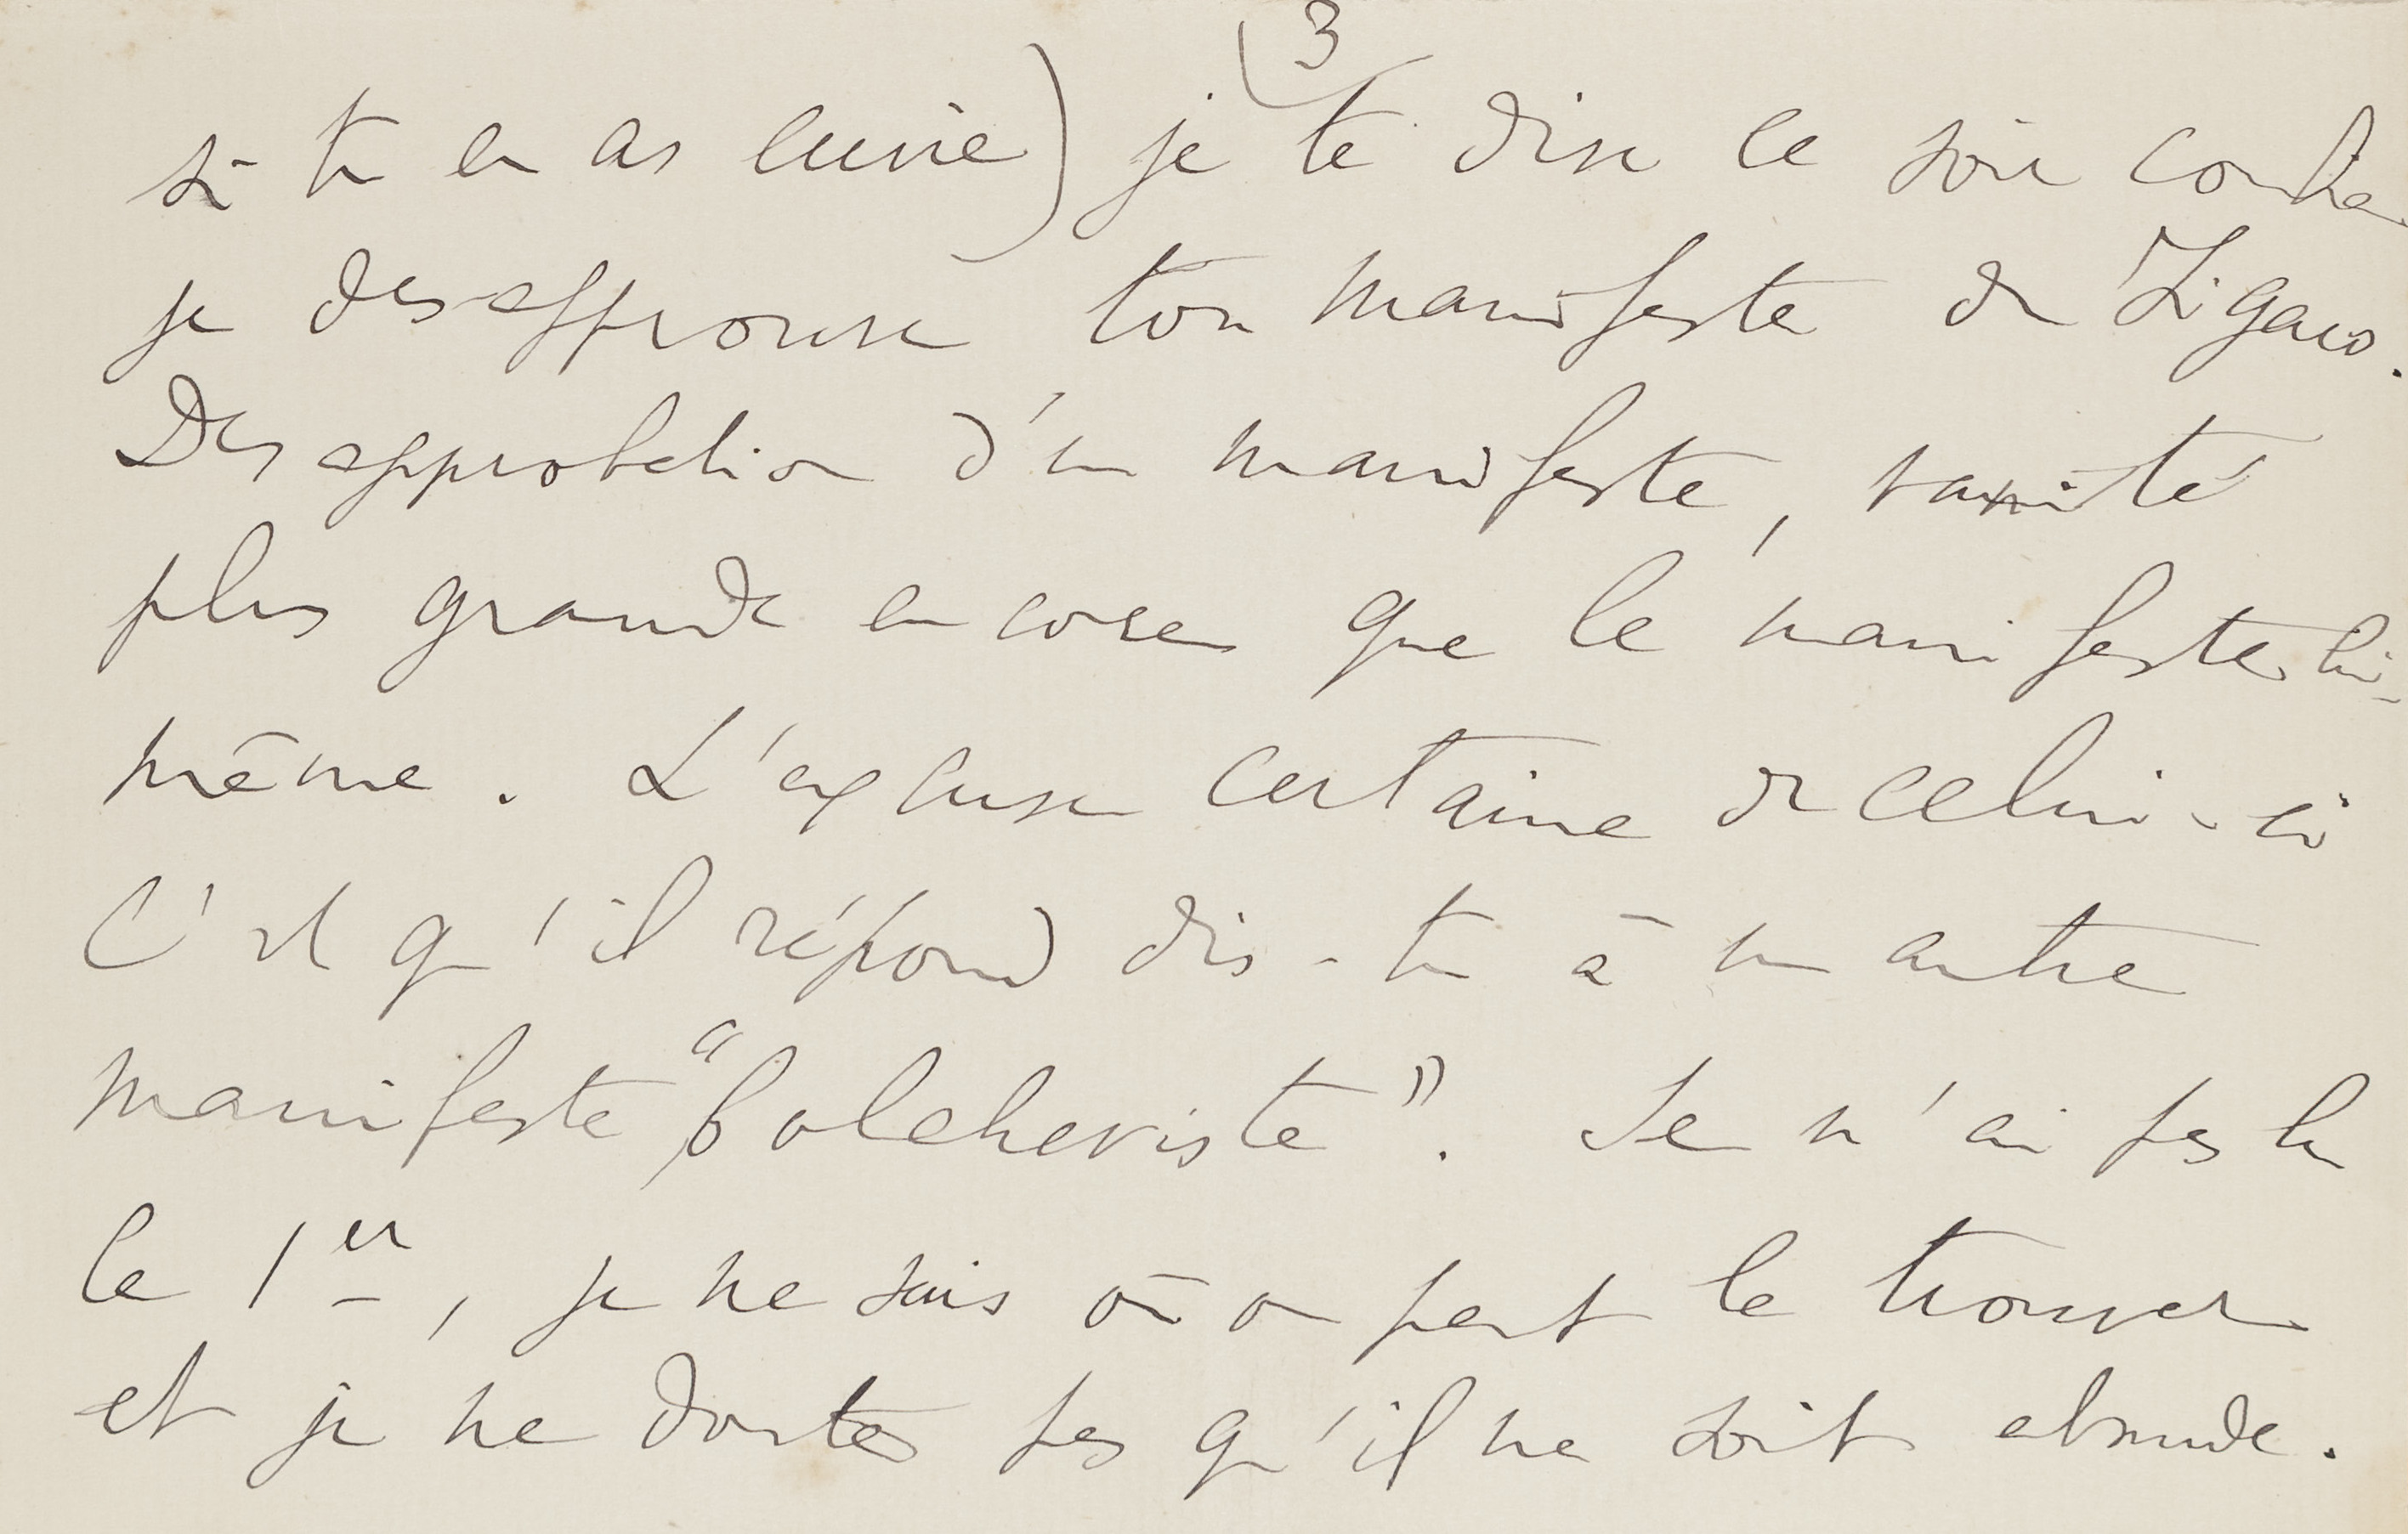 3
si tu en as envie) je te dise ce soir contre
je desapprouve ton manifeste du Figaro.
Desapprobation d'un manifeste, vanité
plus grande encore que le manifeste lui-
même. L'excuse certaine de celui-ci
C'est qu'il répond dis-tu à un autre
manifeste "bolcheviste". Je n'ai pas lu
le 1er, je ne sais où on peut le trouver
et je ne doutes pas qu'il ne soit absurde.